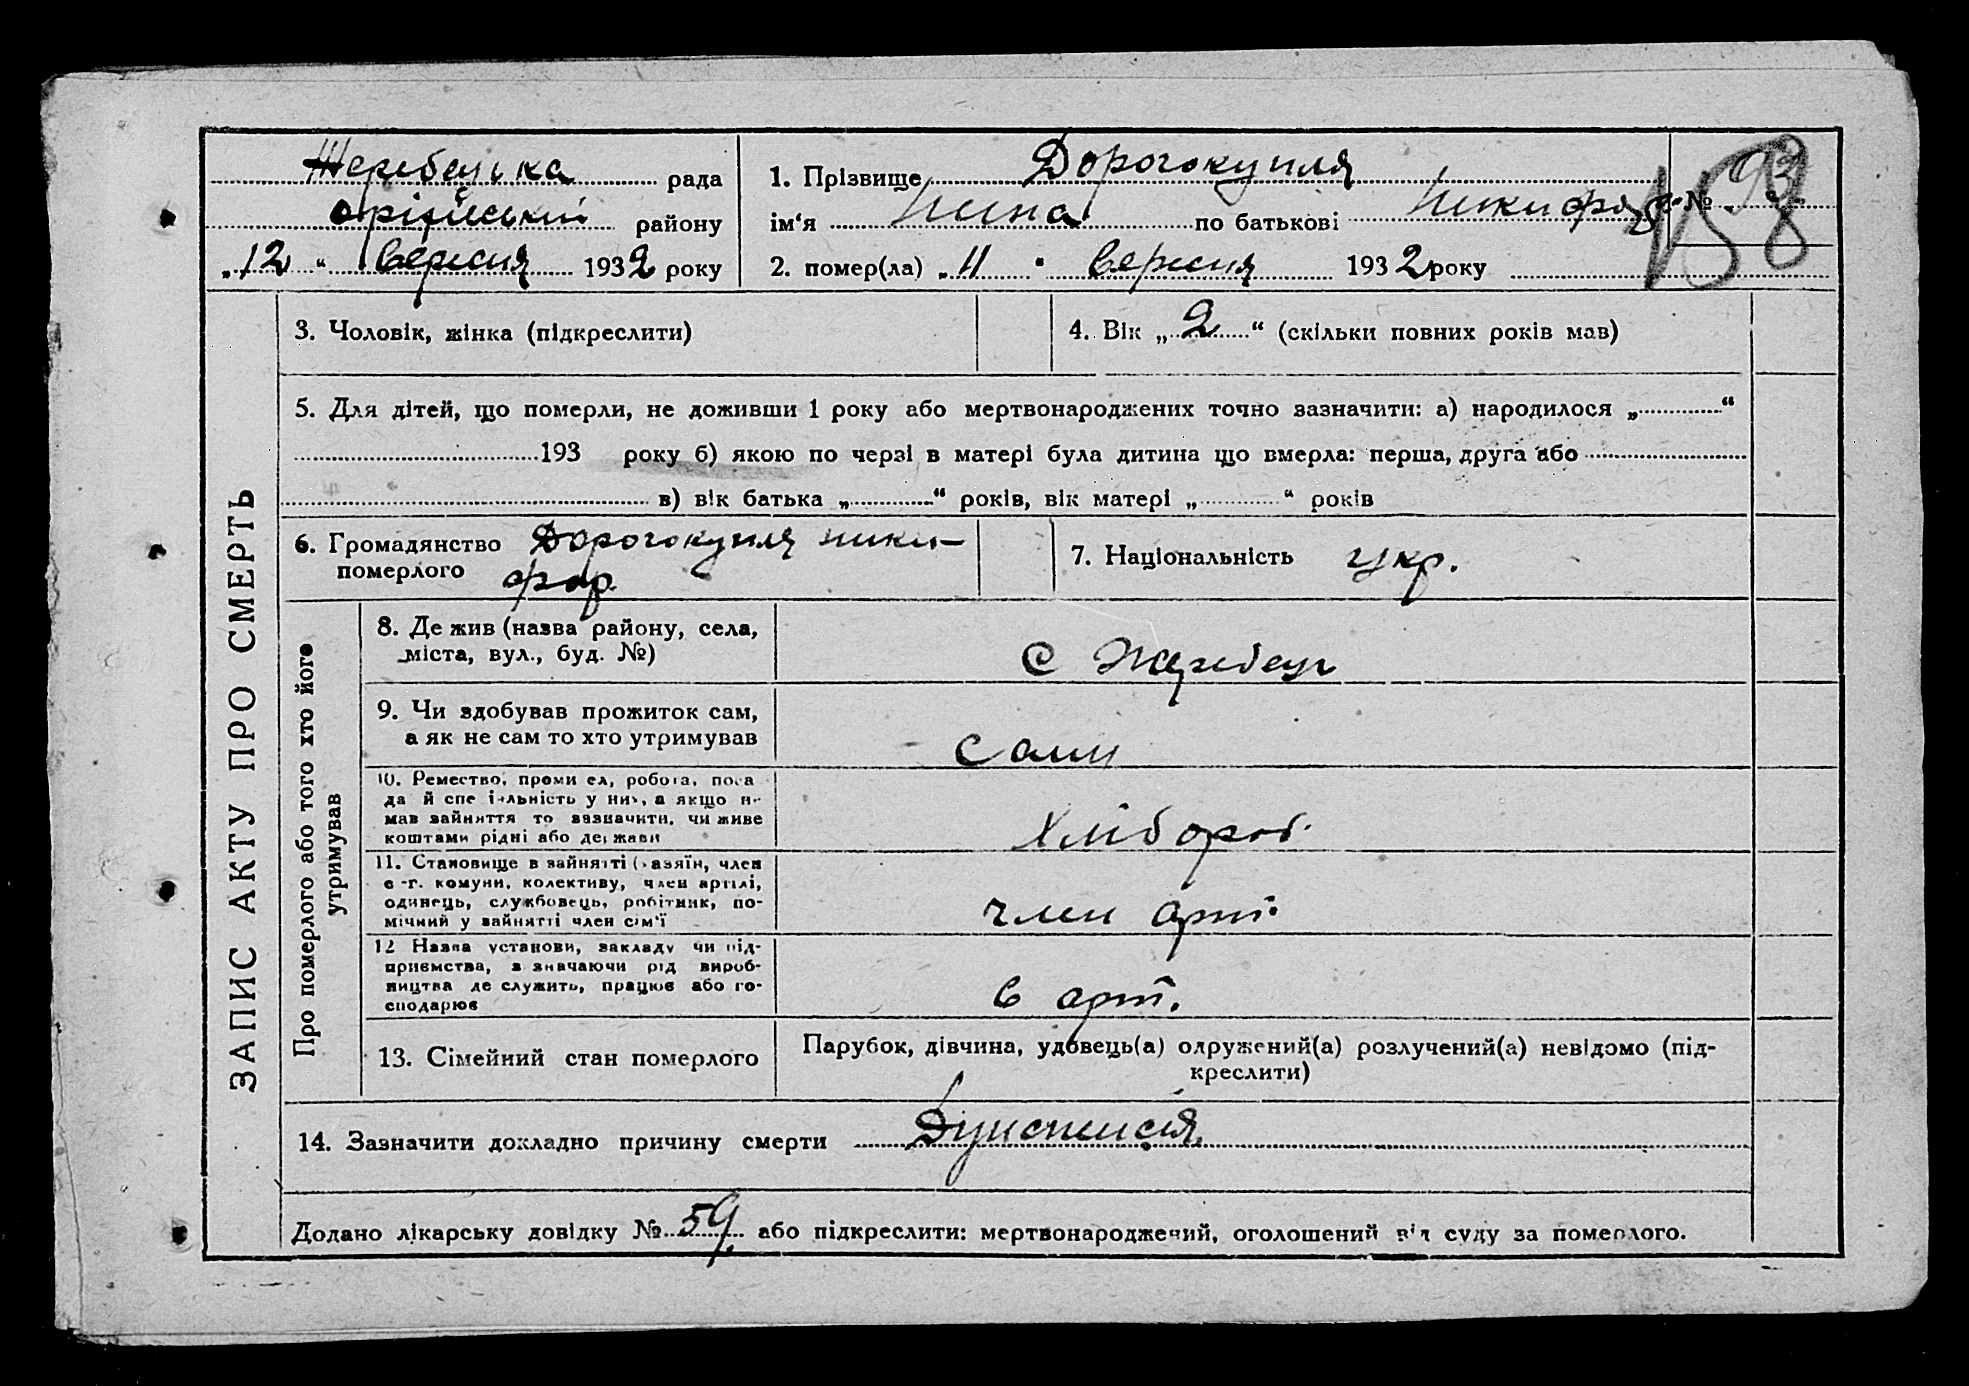 Жеребецька рада
оріхівський району
„12“ Вересня 1932 року
1. Прізвище Дорогокупля
ім‘я Нина по батькові Никифор. № 93
158
2. помер(ла) „11“ Вересня 1932 року
ЗАПИС АКТУ ПРО СМЕРТЬ
3. Чоловік, жінка (підкреслити)
4. Вік „2“ (скільки повних років мав)
5. Для дітей, що померли, не доживши 1 року або мертвонароджених точно зазначити: а) народилося „ “
193 року б) якою по черзі в матері була дитина що вмерла: перша, друга або
в) вік батька „ “ років, вік матері „ “ років
6. Громадянство померлого Дорогокупля ники-
фор.
7. Національність укр.
Про померлого або того хто його утримував
8. Де жив (назва району, села,
міста, вул., буд. №)
С Жеребець
9. Чи здобував прожиток сам,
а як не сам то хто утримував
Сами
10. Ремество, проми ел, робота, поса
да й спе іальність у них, а якщо не
мав зайняття то зазначити, чи живе
коштами рідні або держави
Хлібороб.
11. Становище в зайнятті (хазяїн, член
с-г. комуни, колективу, член артілі,
одинець, службовець, робітник, по-
мічний у зайнятті член сім‘ї
член арт.
12 Назва установи, закладу чи під-
приємства, зазначаючи рід вироб-
ництва де служить, працює або го-
сподарює
в арт.
13. Сімейний стан померлого
Парубок, дівчина, удовець(а) одружений(а) розлучений(а) невідомо (під-
креслити)
14. Зазначити докладно причину смерти
Додано лікарську довідку № 59 або підкреслити: мертвонароджений, оголошений від суду за померлого.